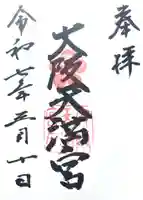 奉拝
大阪天満宮
令和七年三月十日